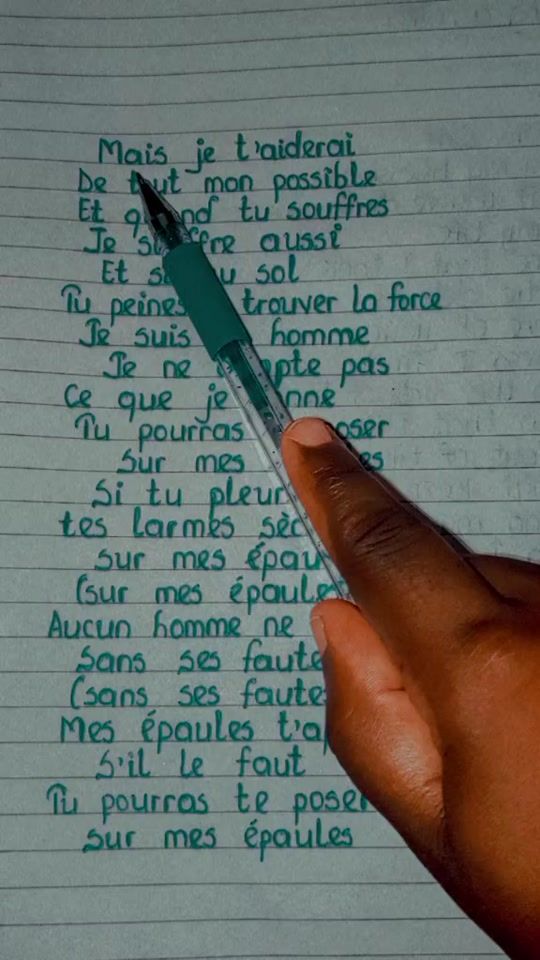 Mais je t'aiderai
De tout mon possible
Et quand tu souffres
Je souffre aussi
Et sol
Tu peines trouver la force
Je suis homme
Je ne compte pas
Ce que je
Tu pourras poser
Sur mes
Si tu
tes larmes
sur mes épaules
(sur mes épaules
Aucun homme ne
Sans ses fautes
(sans ses fautes
Mes épaules
S'il le faut
Tu pourras te poser
Sur mes épaules